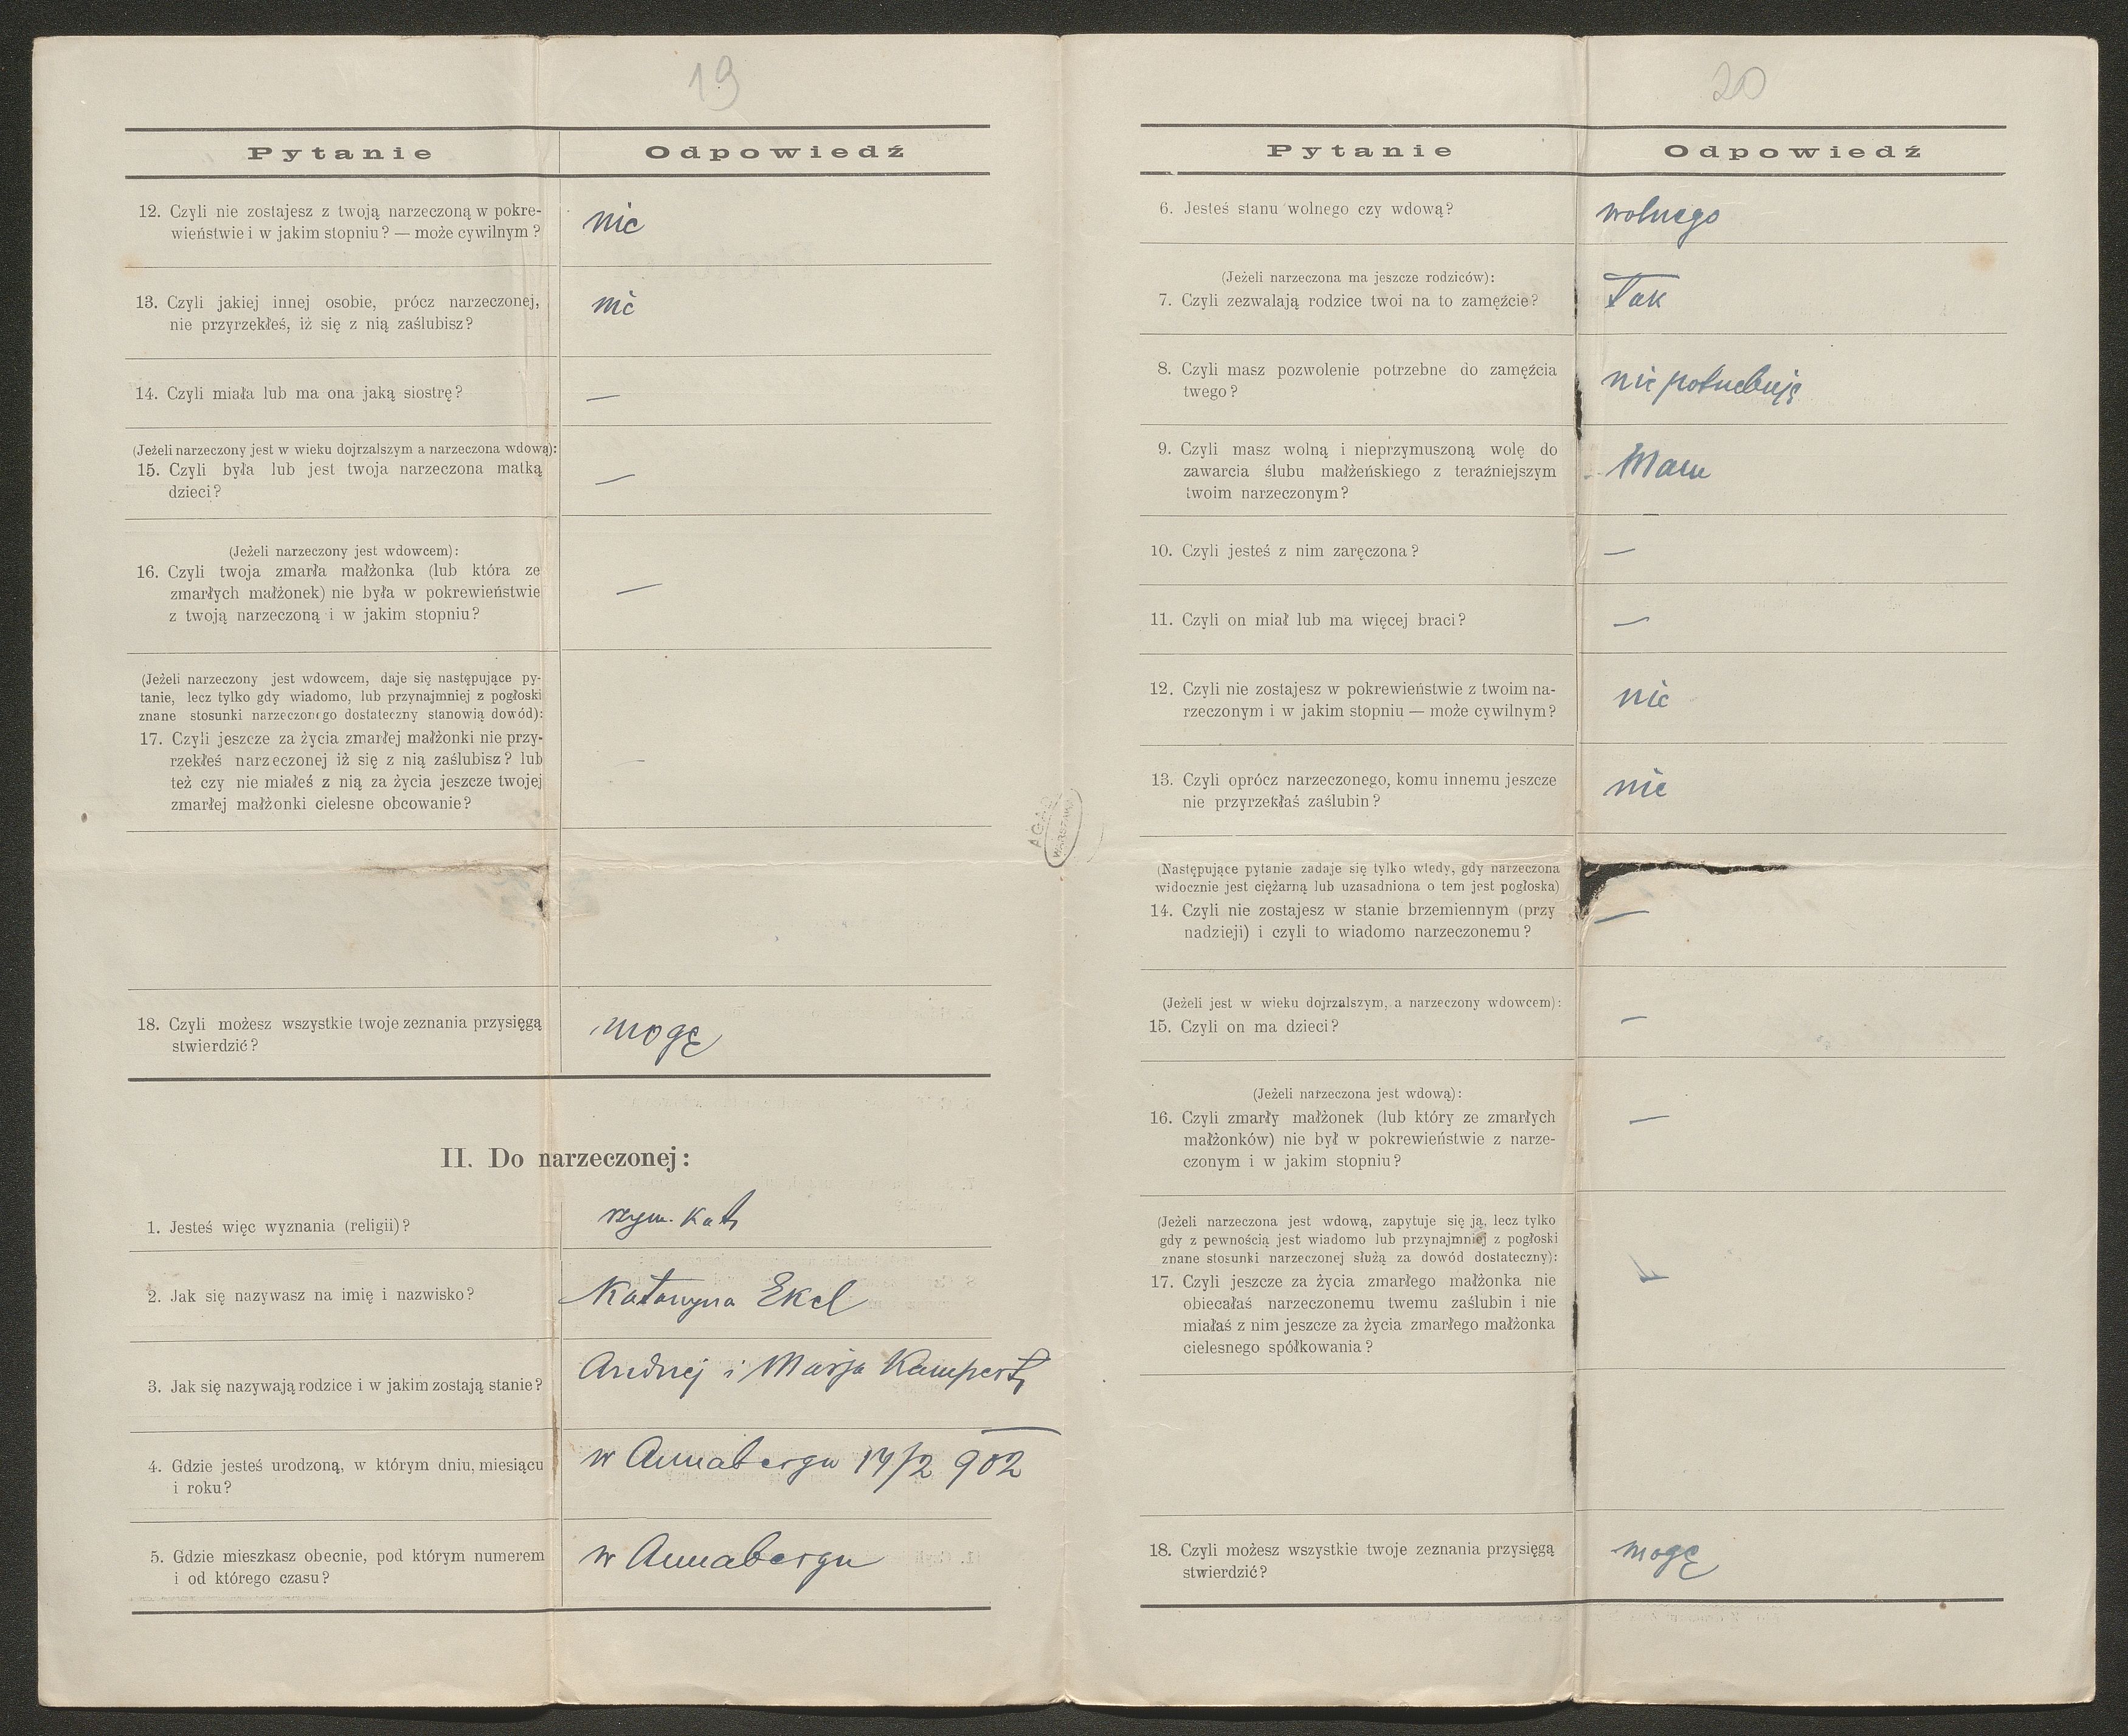 19
Pytanie
Odpowiedź
12. Czyli nie zostajesz z twoją narzeczoną w pokre-
wieństwie i w jakim stopniu? — może cywilnym?
nie
13. Czyli jakiej innej osobie, prócz narzeczonej,
nie przyrzekłeś, iż się z nią zaślubisz?
nie
14. Czyli miała lub ma ona jaką siostrę?
—
(Jeżeli narzeczony jest w wieku dojrzalszym a narzeczona wdową):
15. Czyli była lub jest twoja narzeczona matką
dzieci?
—
(Jeżeli narzeczony jest wdowcem):
16. Czyli twoja zmarła małżonka (lub która ze
zmarłych małżonek) nie była w pokrewieństwie
z twoją narzeczoną i w jakim stopniu?
—
(Jeżeli narzeczony jest wdowcem, daje się następujące py-
tanie, lecz tylko gdy wiadomo, lub przynajmniej z pogłoski
znane stosunki narzeczonego dostateczny stanowią dowód):
17. Czyli jeszcze za życia zmarłej małżonki nie przy-
rzekłeś narzeczonej iż się z nią zaślubisz? lub
też czy nie miałeś z nią za życia jeszcze twojej
zmarłej małżonki cielesne obcowanie?
—
18. Czyli możesz wszystkie twoje zeznania przysięgą
stwierdzić?
mogę
II. Do narzeczonej:
1. Jesteś więc wyznania (religii)?
rzym. kat.
2. Jak się nazywasz na imię i nazwisko?
Katarzyna Ekel
3. Jak się nazywają rodzice i w jakim zostają stanie?
Andrzej i Marja Kampert
4. Gdzie jesteś urodzoną, w którym dniu, miesiącu
i roku?
w Annabergu 17/2 902
5. Gdzie mieszkasz obecnie, pod którym numerem
i od którego czasu?
w Annabergu
AGAD
WARSZAWA
20
Pytanie
Odpowiedź
6. Jesteś stanu wolnego czy wdową?
wolnego
(Jeżeli narzeczona ma jeszcze rodziców):
7. Czyli zezwalają rodzice twoi na to zamęźcie?
Tak
8. Czyli masz pozwolenie potrzebne do zamęźcia
twego?
nie potrzebuję
9. Czyli masz wolną i nieprzymuszoną wolę do
zawarcia ślubu małżeńskiego z teraźniejszym
twoim narzeczonym?
Mam
10. Czyli jesteś z nim zaręczona?
—
11. Czyli on miał lub ma więcej braci?
—
12. Czyli nie zostajesz w pokrewieństwie z twoim na-
rzeczonym i w jakim stopniu — może cywilnym?
nie
13. Czyli oprócz narzeczonego, komu innemu jeszcze
nie przyrzekłaś zaślubin?
nie
(Następujące pytanie zadaje się tylko wtedy, gdy narzeczona
widocznie jest ciężarną lub uzasadniona o tem jest pogłoska)
14. Czyli nie zostajesz w stanie brzemiennym (przy
nadzieji) i czyli to wiadomo narzeczonemu?
—
(Jeżeli jest w wieku dojrzalszym, a narzeczony wdowcem):
15. Czyli on ma dzieci?
—
(Jeżeli narzeczona jest wdową):
16. Czyli zmarły małżonek (lub który ze zmarłych
małżonków) nie był w pokrewieństwie z narze-
czonym i w jakim stopniu?
—
(Jeżeli narzeczona jest wdową, zapytuje się ją, lecz tylko
gdy z pewnością jest wiadomo lub przynajmniej z pogłoski
znane stosunki narzeczonej służą za dowód dostateczny):
17. Czyli jeszcze za życia zmarłego małżonka nie
obiecałaś narzeczonemu twemu zaślubin i nie
miałaś z nim jeszcze za życia zmarłego małżonka
cielesnego spółkowania?
—
18. Czyli możesz wszystkie twoje zeznania przysięgą
stwierdzić?
mogę